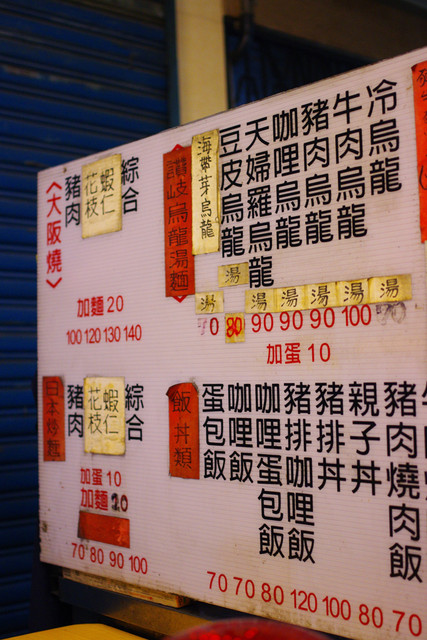 《大阪燒》
豬肉
花枝
蝦仁
綜合
加麵20
100 120 130 140
讚岐烏龍湯麵
海帶芽烏龍
豆皮烏龍
天婦羅烏龍
咖哩烏龍
豬肉烏龍
牛肉烏龍
冷烏龍
湯
湯
湯
湯
湯
湯
湯
80 90 90 90 100
加蛋10
日本炒麵
豬肉
花枝
蝦仁
綜合
加蛋10
加麵20
70 80 90 100
飯丼類
蛋包飯
咖哩飯
咖哩蛋包飯
豬排咖哩飯
豬排丼
親子丼
豬肉燒肉飯
70 70 80 120 100 80 70